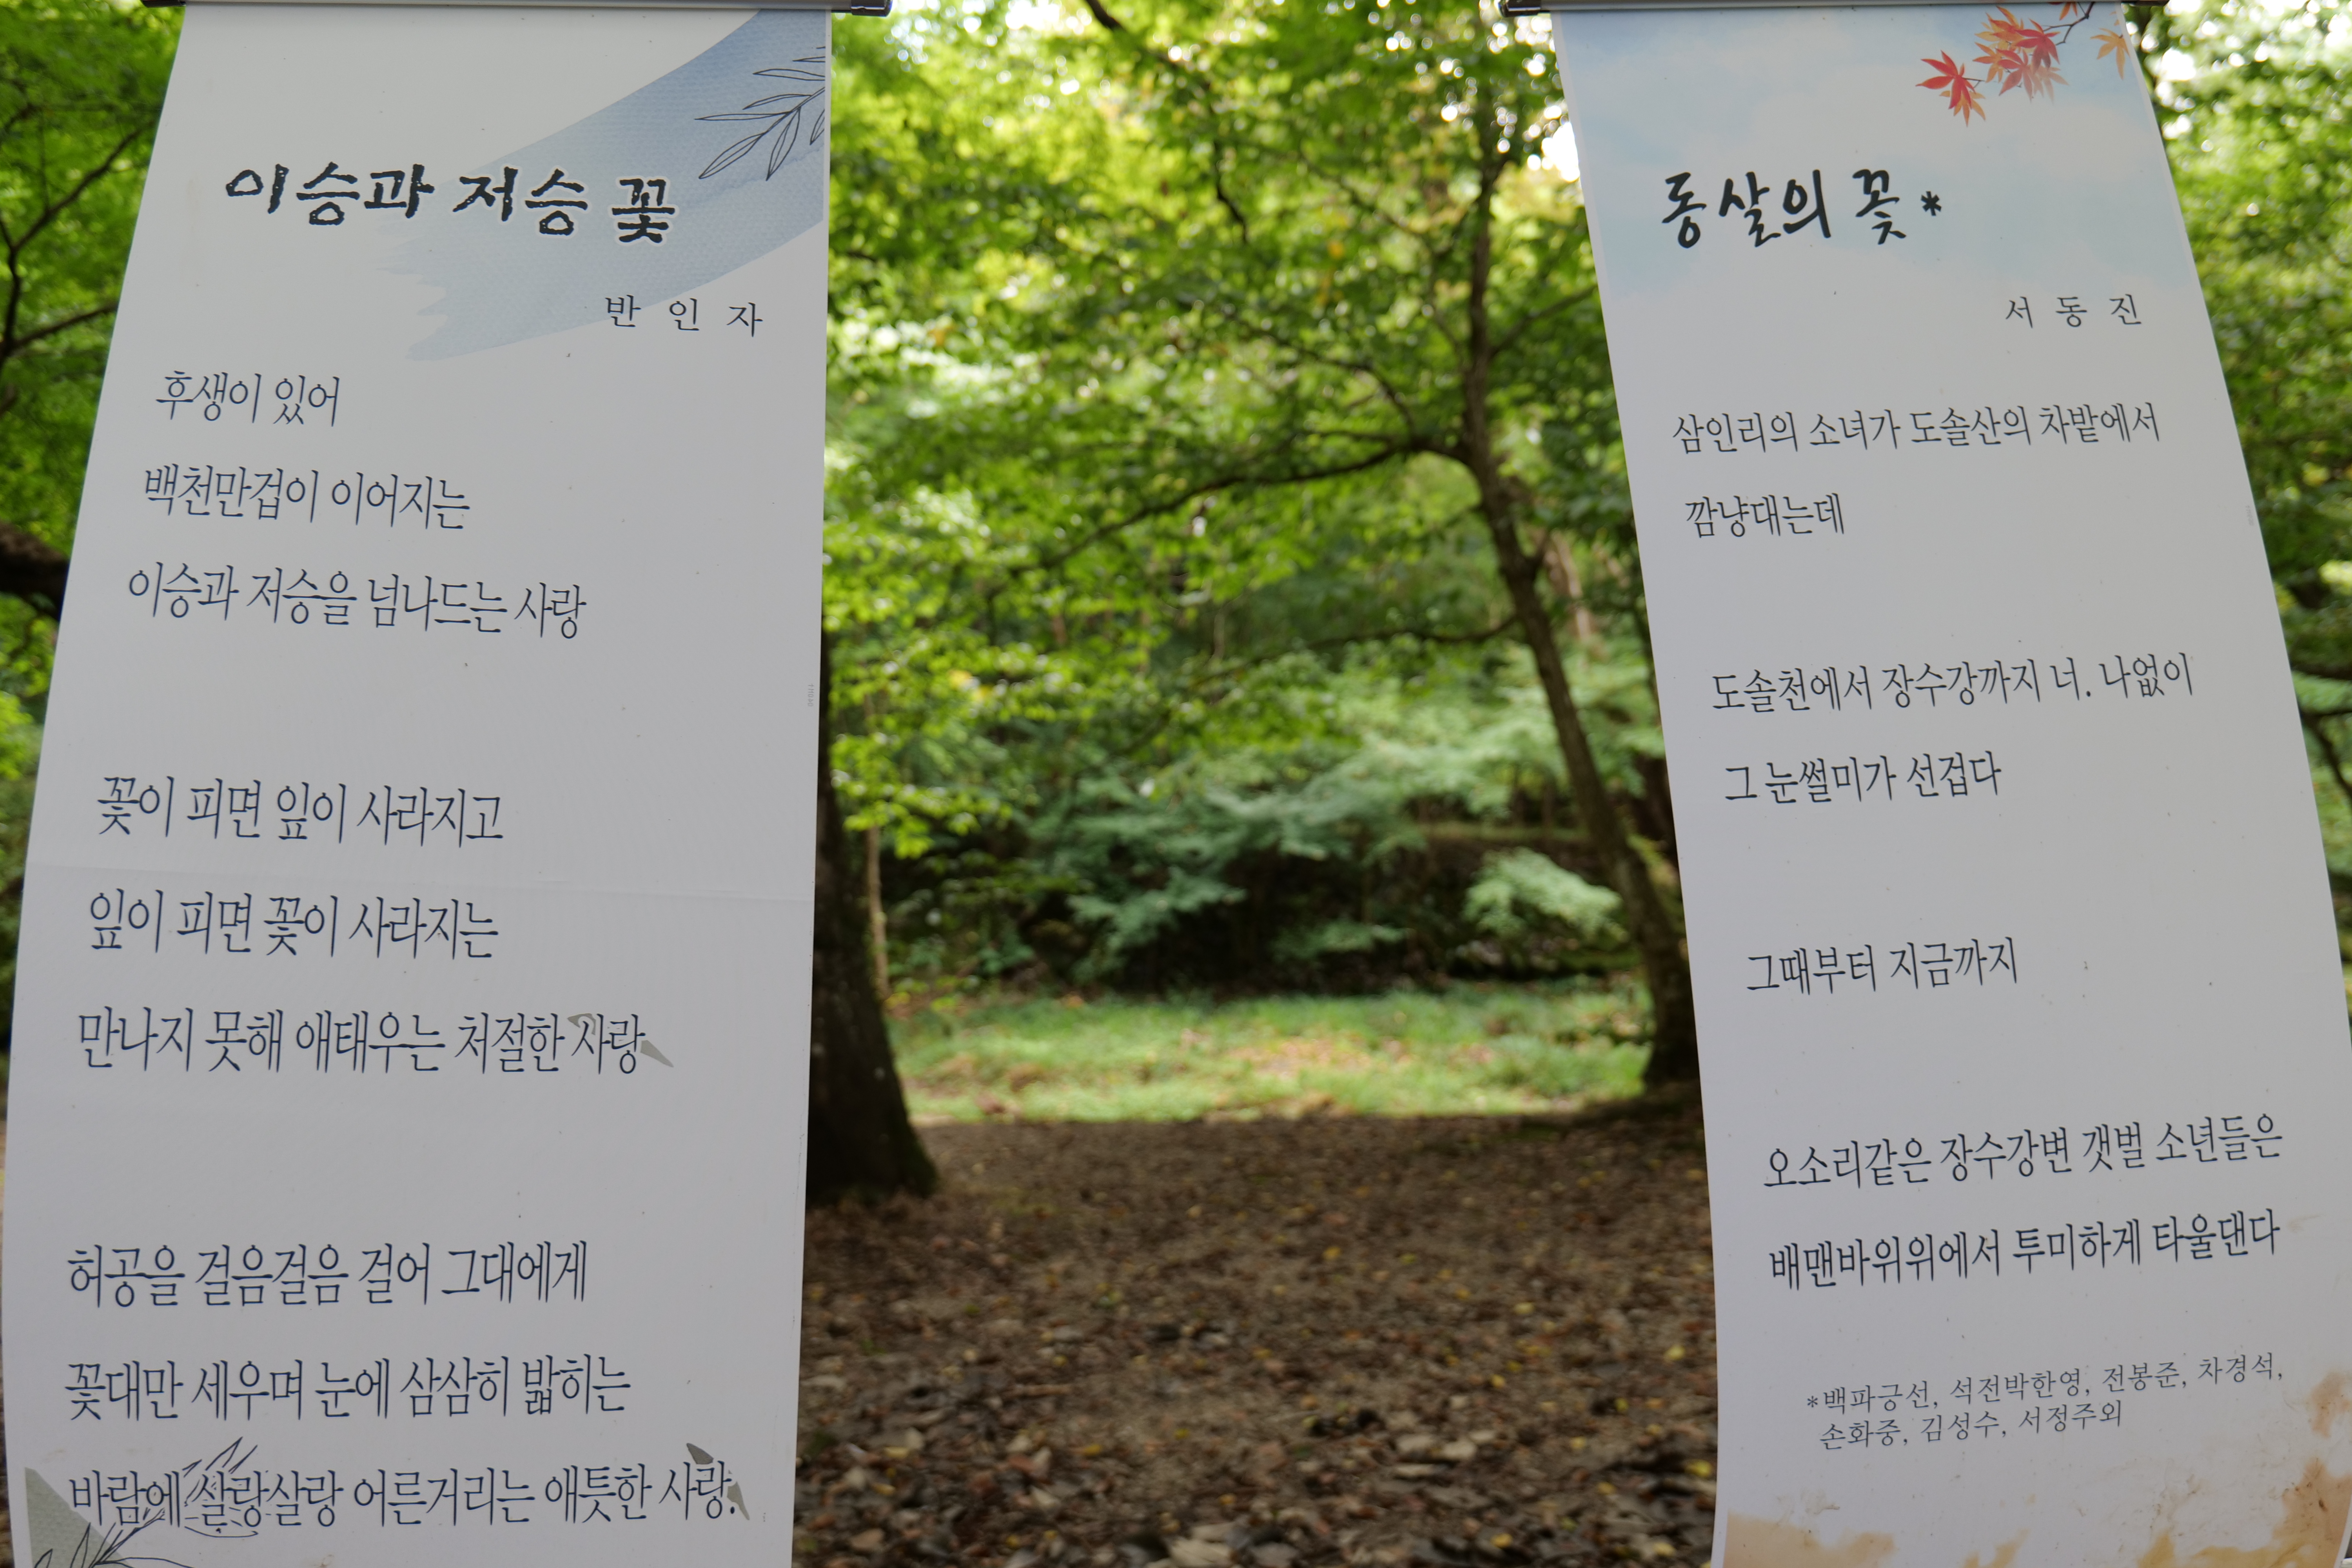 이승과 저승 꽃
반 인 자
후생이 있어
백천만겁이 이어지는
이승과 저승을 넘나드는 사랑
꽃이 피면 잎이 사라지고
잎이 피면 꽃이 사라지는
만나지 못해 애태우는 처절한 사랑
허공을 걸음걸음 걸어 그대에게
꽃대만 세우며 눈에 삼삼히 밟히는
바람에 살랑살랑 어른거리는 애틋한 사랑.
동살의 꽃*
서 동 진
삼인리의 소녀가 도솔산의 차밭에서
깜냥대는데
도솔천에서 장수강까지 너. 나없이
그 눈썰미가 선겁다
그때부터 지금까지
오소리같은 장수강변 갯벌 소년들은
배맨바위위에서 투미하게 타울댄다
*백파긍선, 석전박한영, 전봉준, 차경석,
손화중, 김성수, 서정주외